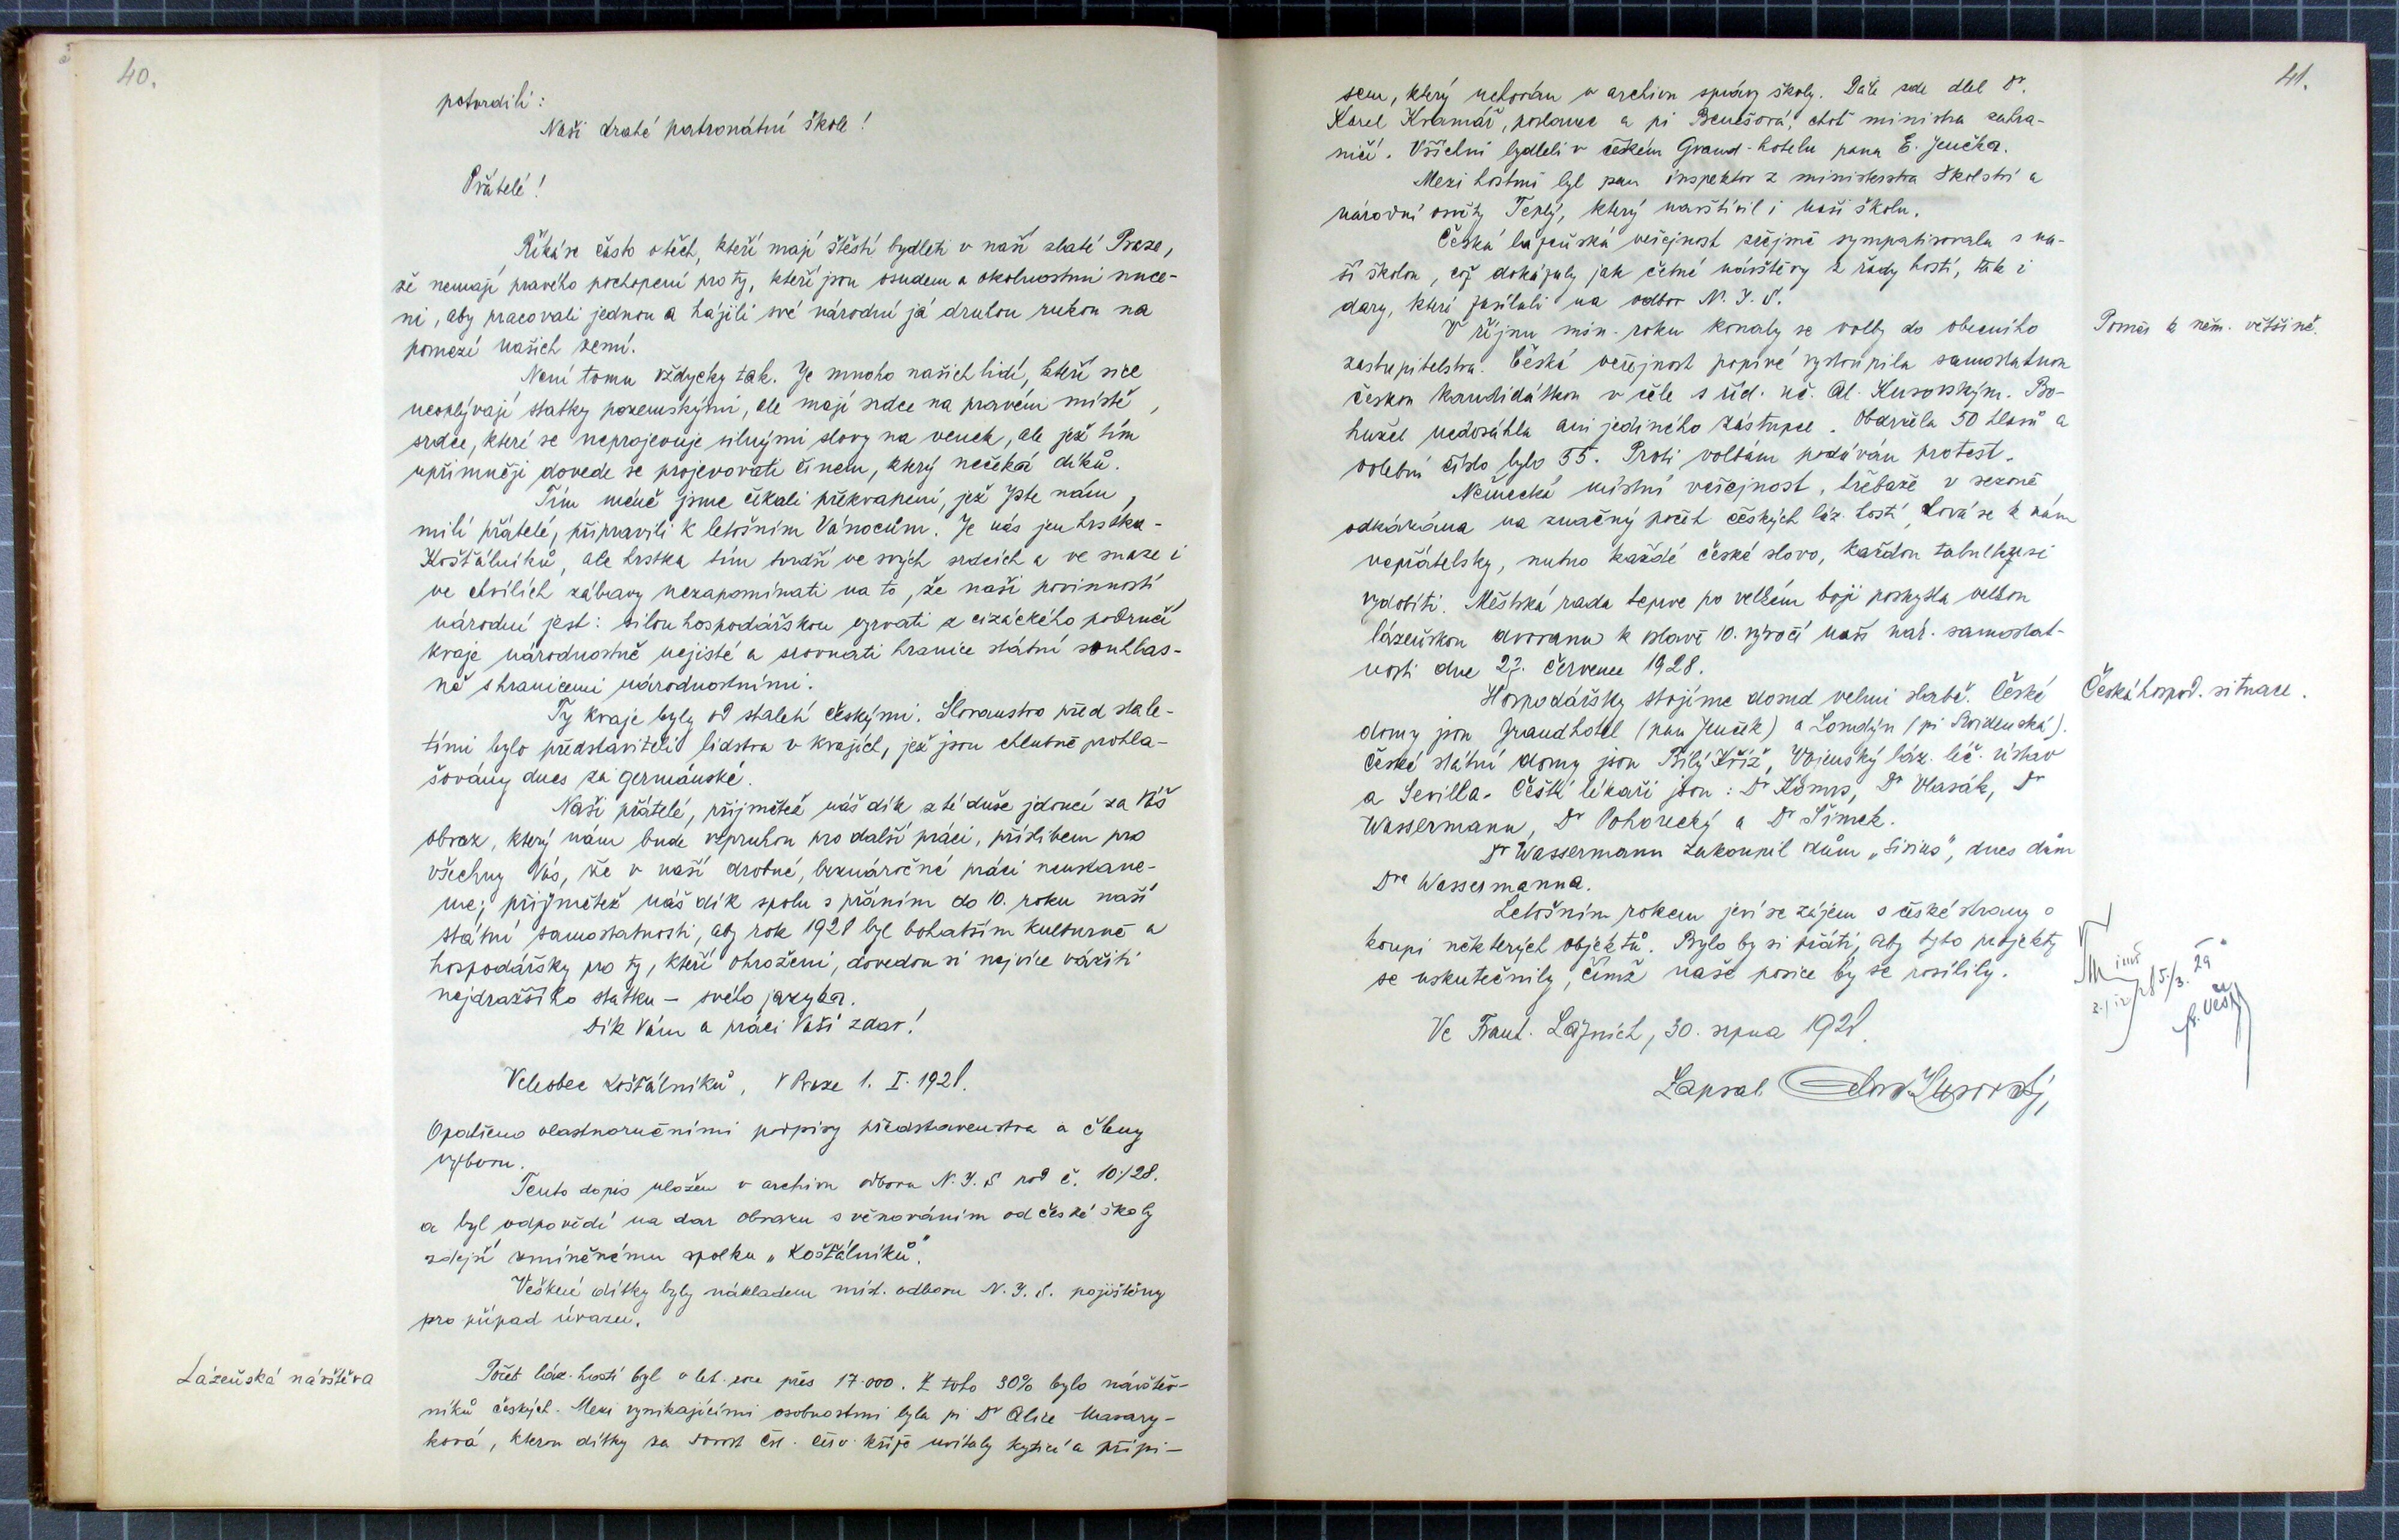 40.
potvrdili:
Naší drahé patronátní škole!
Přátelé!
Říká se často o těch, kteří mají štěstí bydleti v naší zlaté Praze,
že nemají pravého pochopení pro ty, kteří jsou osudem a okolnostmi nuce-
ni, aby pracovali jednou a hájili své národní já druhou rukou na
pomezí našich zemí.
Není tomu vždycky tak. Je mnoho našich lidí, kteří sice
neoplývají statky pozemskými, ale mají srdce na pravém místě,
srdce, které se neprojevuje silnými slovy na venek, ale jež tím
upřímněji dovede se projevovati činem, který nečeká díků.
Tím méně jsme čekali překvapení, jež jste nám,
milí přátelé, připravili k letošním Vánocům. Je nás jen hrstka -
Košťálníků, ale hrstka tím tvrdší ve svých srdcích a ve snaze i
ve chvílích zábavy nezapomínati na to, že naší povinností
národní jest: silou hospodářskou vyrvati z cizáckého područí
kraje národnostně nejisté a srovnati hranice státní souhlas-
ně s hranicemi národnostními.
Ty kraje byly od staletí českými. Slovanstvo před stale-
tími bylo představiteli lidstva v krajích, jež jsou chlubně prohla-
šovány dnes za germánské.
Naši přátelé, přijmětež náš dík z té duše jdoucí za Váš
obraz, který nám bude vzpruhou pro další práci, příslibem pro
všechny Vás, že v naší drobné, beznáročné práci neustane-
me; přijmětež náš dík spolu s přáním do 10. roku naší
státní samostatnosti, aby rok 1928 byl bohatším kulturně a
hospodářsky pro ty, kteří ohroženi, dovedou si nejvíce vážiti
nejdražšího statku - svého jazyka.
Dík Vám a práci Vaší zdar!
Veleobec košťálníků, V Praze 1. I. 1928.
Opatřeno vlastnoručními podpisy představenstva a členy
výboru.
Tento dopis uložen v archivu odboru N. J. S pod č. 10/28.
a byl odpovědí na dar obrazu s věnováním od české školy
zdejší zmíněnému spolku „Košťálníků".
Veškeré dítky byly nákladem míst. odboru N. J. S. pojištěny
pro případ úrazu.
Lázeňská návštěva
Počet láz. hostí byl v let. roce přes 17.000. Z toho 30% bylo návštěv-
níků českých. Mezi vynikajícími osobnostmi byla pí Dr Alice Masary-
ková, kterou dítky za dorost čsl. červ. kříže uvítaly kyticí a přípi-
41.
sem, který uchován v archivu správy školy. Dále zde dlel Dr.
Karel Kramář, poslanec a pí Benešová, choť ministra zahra-
ničí. Všichni bydleli v českém Grand-hotelu pana E. Jenčka.
Mezi hostmi byl pan inspektor z ministerstva školství a
národní osvěty Teplý, který navštívil i naši školu.
Česká lázeňská veřejnost zřejmě sympatisovala s na-
ší školou, což dokázaly jak četné návštěvy z řady hostí, tak i
dary, které zasílali na odbor N. J. S.
Poměr k něm. většině.
V říjnu min. roku konaly se volby do obecního
zastupitelstva. Česká veřejnost poprvé vystoupila samostatnou
českou kandidátkou v čele s říd. uč. Al. Kusovským. Bo-
hužel nedosáhla ani jediného zástupce. Obdržela 50 hlasů a
volební číslo bylo 55. Proti volbám podáván protest.
Německá místní veřejnost, třebaže v sezoně
odkázána na značný počet českých láz. hostí, chová se k nám
nepřátelsky, nutno každé české slovo, každou tabulku si
vydobíti. Městská rada teprve po velkém boji poskytla velkou
lázeňskou dvoranu k oslavě 10. výročí naší nár. samostat-
nosti dne 27. července 1928.
Česká hospod. situace.
Hospodářsky stojíme dosud velmi slabě. České
domy jsou Grandhotel (pan Jenček) a Londýn (pí Svidenská).
České státní domy jsou Bílý Kříž, Vojenský láz. léč. ústav
a Sevilla. Čeští lékaři jsou: Dr Kámrs, Dr Vlasák, Dr
Wassermann, Dr Pohorecký a Dr Šimek.
Dr Wassermann zakoupil dům „Sirius", dnes dům
Dra Wassermanna.
Letošním rokem jeví se zájem s české strany o
koupi některých objektů. Bylo by si přáti, aby tyto projekty
se uskutečnily, čímž naše posice by se posílily.
Ve Frant. Lázních, 30. srpna 1928.
Zapsal Kusovský